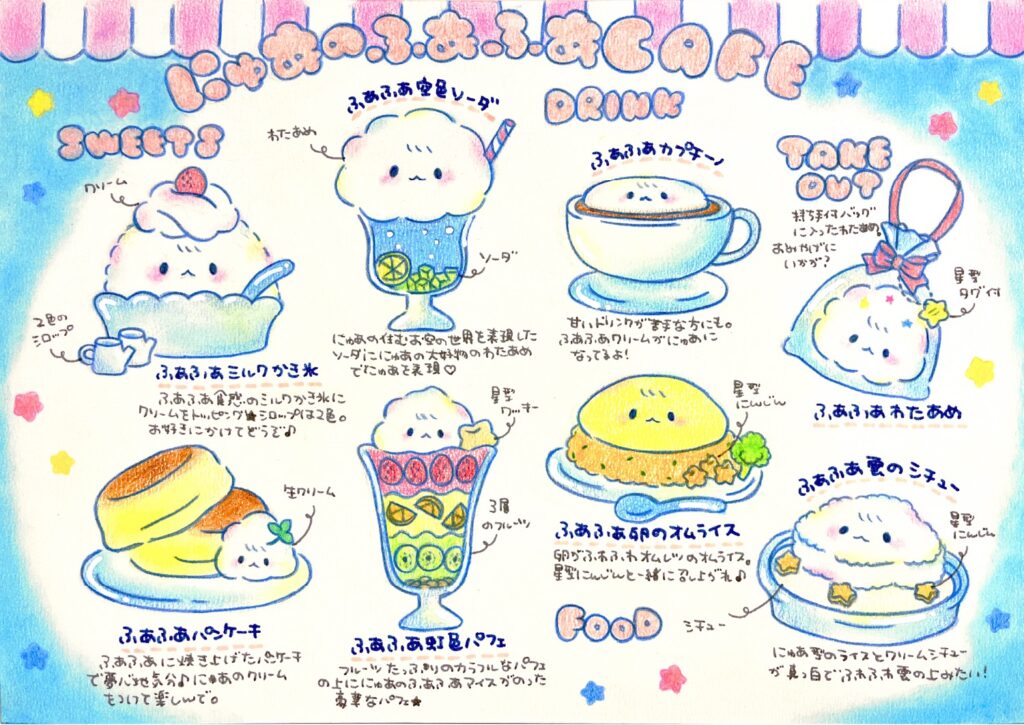 にゅあのふ.あ.ふ.あCAFE
SWEETS
クリーム
2色の
シロップ
ふあふあミルクかき氷
ふあふあ食感のミルクかき氷に
クリームをトッピング★シロップは2色。
お好きにかけてどうぞ♪
生クリーム
ふあふあパンケーキ
ふあふあに焼き上げたパンケーキ
で夢心地気分♪にゅあのクリーム
もつけて楽しんで。
ふあふあ空色ソーダ
わたあめ
ソーダ
にゅあの住むお空の世界を表現した
ソーダににゅあの大好物のわたあめ
でにゅあを表現♡
星型
クッキー
3層
のフルーツ
ふあふあ虹色パフェ
フルーツたっぷりのカラフルなパフェ
の上ににゅあのふあふあアイスがのった
豪華なパフェ★
DRINK
ふあふあカプチーノ
甘いドリンクが苦手な方にも。
ふあふあクリームがにゅあに
なってるよ!
TAKE
OUT
持ち手付バッグ
に入ったわたあめ。
おみやげに
いかが?
星型
タグ付
ふあふあわたあめ
星型
にんじん
ふあふあ卵のオムライス
卵がふわふわオムレツのオムライス。
星型にんじんと一緒に召し上がれ♪
FOOD
ふあふあ雲のシチュー
星型
にんじん
シチュー
にゅあ型のライスとクリームシチュー
が真っ白でふわふわ雲の上みたい!